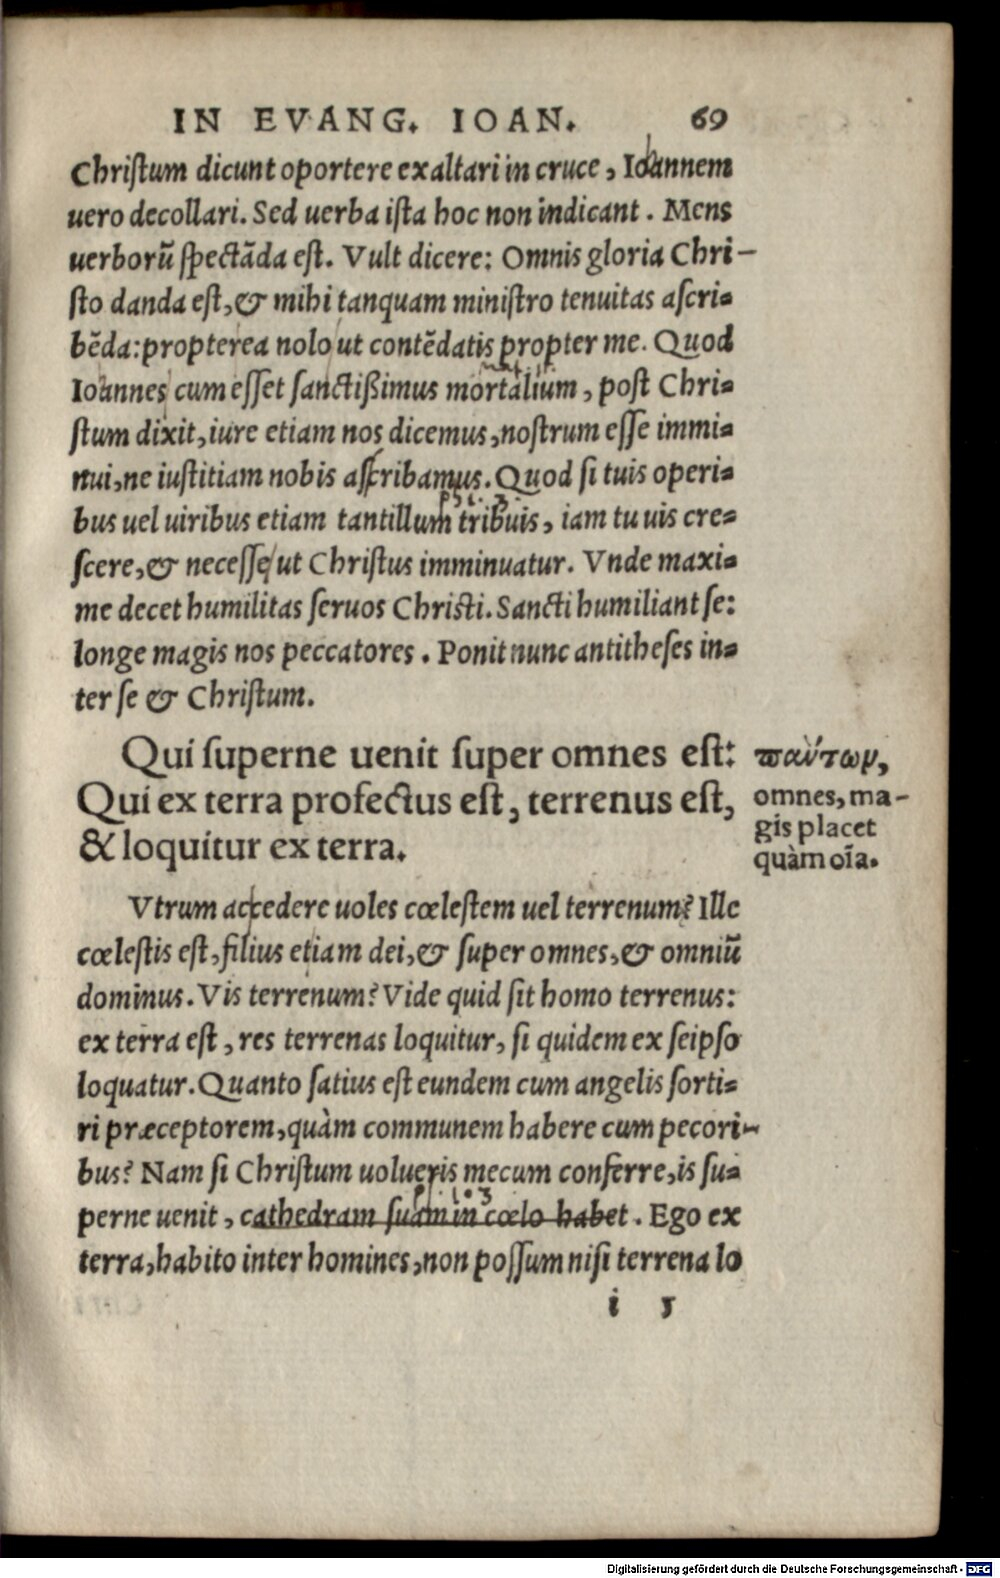 IN EVANG. IOAN. 69
Christum dicunt oportere exaltari in cruce, Ioannem
uero decollari. Sed uerba ista hoc non indicant. Mens
uerborũ spectãda est. Vult dicere: Omnis gloria Chri-
sto danda est, & mihi tanquam ministro tenuitas ascri-
bẽda: propterea nolo ut contẽdatis propter me. Quod
Ioannes cum esset sanctißimus mortalium, post Chri-
stum dixit, iure etiam nos dicemus, nostrum esse immi-
nui, ne iustitiam nobis ascribamus. Quod si tuis operi-
bus uel uiribus etiam tantillum tribuis, iam tu uis cre-
scere, & necesse ut Christus imminuatur. Vnde maxi-
me decet humilitas seruos Christi. Sancti humiliant se:
longe magis nos peccatores. Ponit nunc antitheses in-
ter se & Christum.
Qui superne uenit super omnes est:
Qui ex terra profectus est, terrenus est,
& loquitur ex terra.
πάντων,
omnes, ma-
gis placet
quàm oĩa.
Vtrum accedere uoles cœlestem uel terrenum? Ille
cœlestis est, filius etiam dei, & super omnes, & omniũ
dominus. Vis terrenum? Vide quid sit homo terrenus:
ex terra est, res terrenas loquitur, si quidem ex seipso
loquatur. Quanto satius est eundem cum angelis sorti-
ri præceptorem, quàm communem habere cum pecori-
bus? Nam si Christum uolueris mecum conferre, is su-
perne uenit, cathedram suam in cœlo habet. Ego ex
terra, habito inter homines, non possum nisi terrena lo
i 5
Digitalisierung gefördert durch die Deutsche Forschungsgemeinschaft - DFG